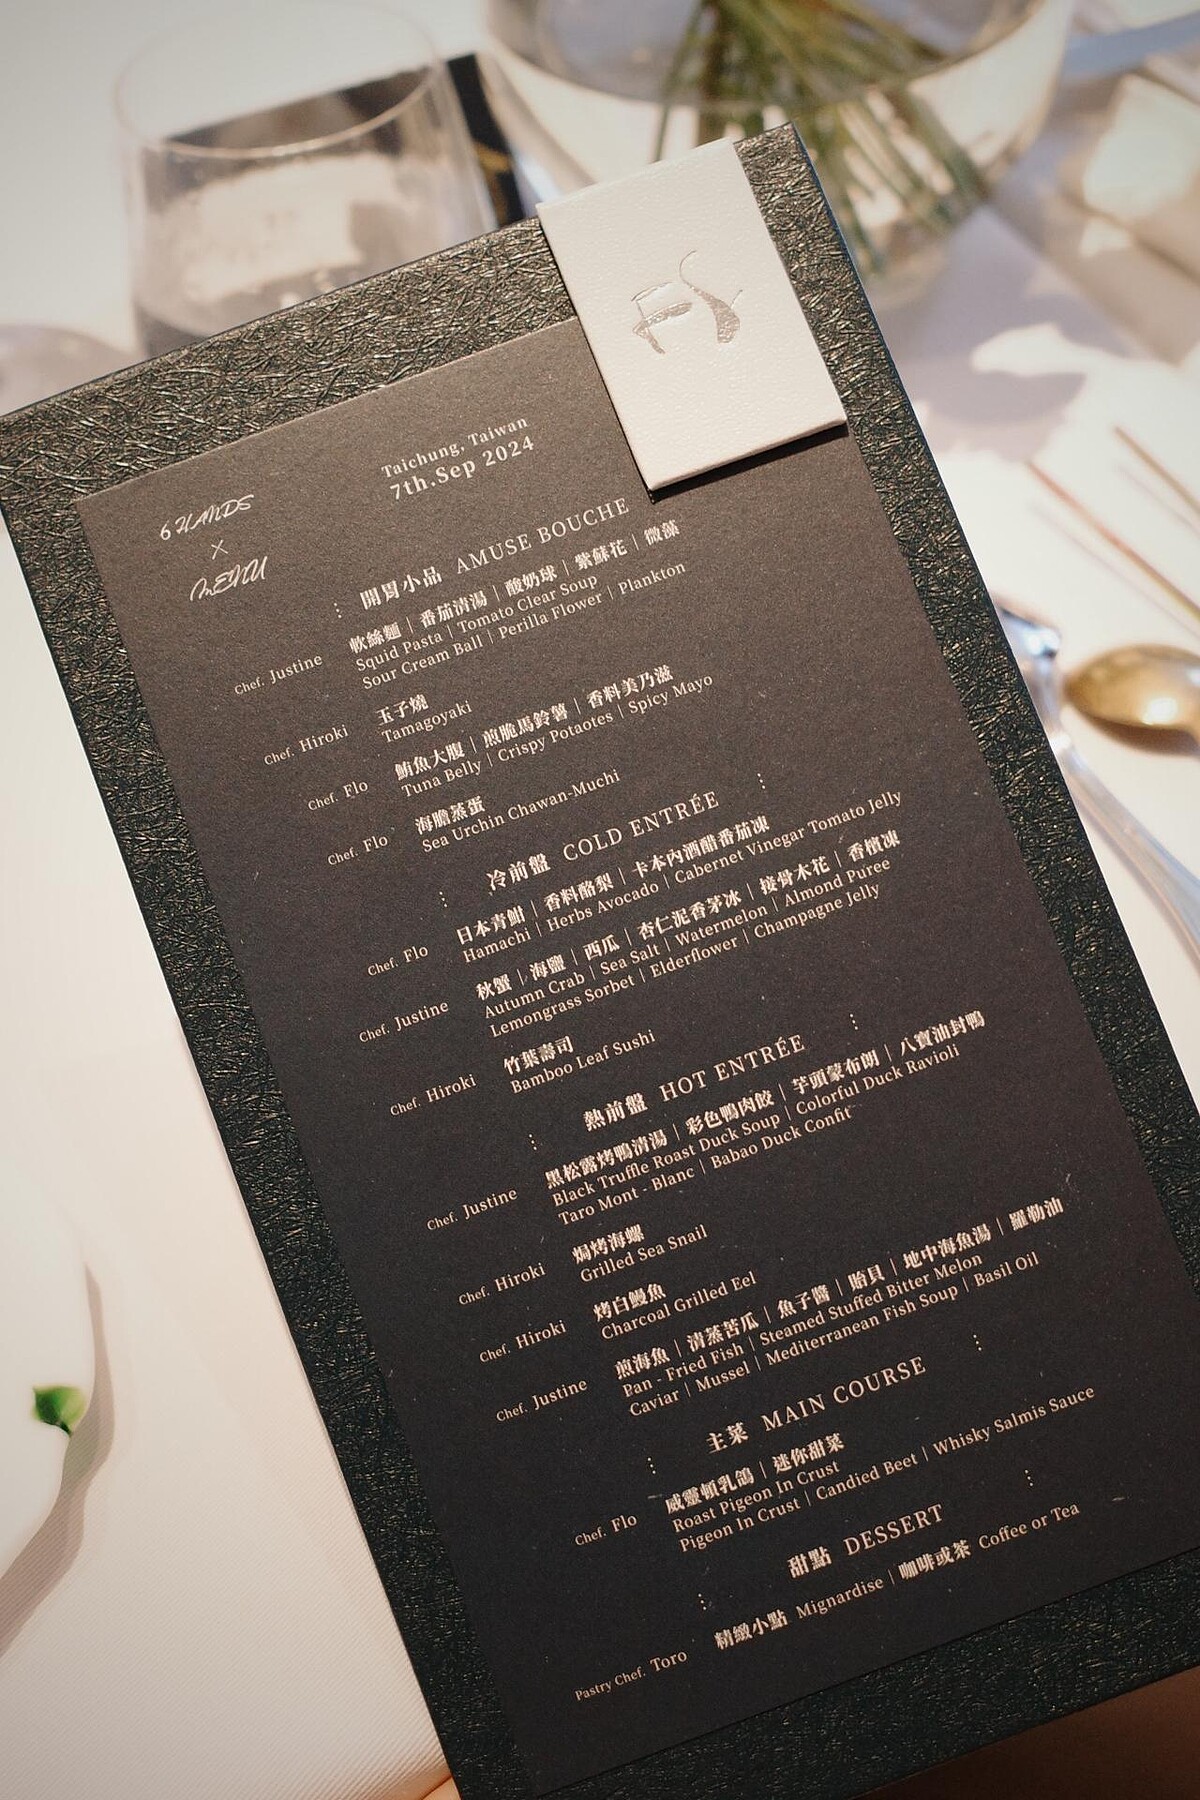 FS
Taichung, Taiwan
7th.Sep 2024
6 HANDS
×
MENU
開胃小品 AMUSE BOUCHE
Chef. Justine
軟絲麵 | 番茄清湯 | 酸奶球 | 紫蘇花 | 微藻
Squid Pasta | Tomato Clear Soup
Sour Cream Ball | Perilla Flower | Plankton
Chef. Hiroki
玉子燒
Tamagoyaki
Chef. Flo
鮪魚大腹 | 煎脆馬鈴薯 | 香料美乃滋
Tuna Belly | Crispy Potaotes | Spicy Mayo
Chef. Flo
海膽蒸蛋
Sea Urchin Chawan-Muchi
冷前盤 COLD ENTRÉE
Chef. Flo
日本青魽 | 香料酪梨 | 卡本內酒醋番茄凍
Hamachi | Herbs Avocado | Cabernet Vinegar Tomato Jelly
Chef. Justine
秋蟹 | 海鹽 | 西瓜 | 杏仁泥香茅冰 | 接骨木花 | 香檳凍
Autumn Crab | Sea Salt | Watermelon | Almond Puree
Lemongrass Sorbet | Elderflower | Champagne Jelly
Chef. Hiroki
竹葉壽司
Bamboo Leaf Sushi
熱前盤 HOT ENTRÉE
Chef. Justine
黑松露烤鴨清湯 | 彩色鴨肉餃 | 芋頭蒙布朗 | 八寶油封鴨
Black Truffle Roast Duck Soup | Colorful Duck Ravioli
Taro Mont - Blanc | Babao Duck Confit
Chef. Hiroki
焗烤海螺
Grilled Sea Snail
Chef. Hiroki
烤白鰻魚
Charcoal Grilled Eel
Chef. Justine
煎海魚 | 清蒸苦瓜 | 魚子醬 | 貽貝 | 地中海魚湯 | 羅勒油
Pan - Fried Fish | Steamed Stuffed Bitter Melon
Caviar | Mussel | Mediterranean Fish Soup | Basil Oil
主菜 MAIN COURSE
Chef. Flo
威靈頓乳鴿 | 迷你甜菜
Roast Pigeon In Crust
Pigeon In Crust | Candied Beet | Whisky Salmis Sauce
甜點 DESSERT
Pastry Chef. Toro
精緻小點 Mignardise | 咖啡或茶 Coffee or Tea